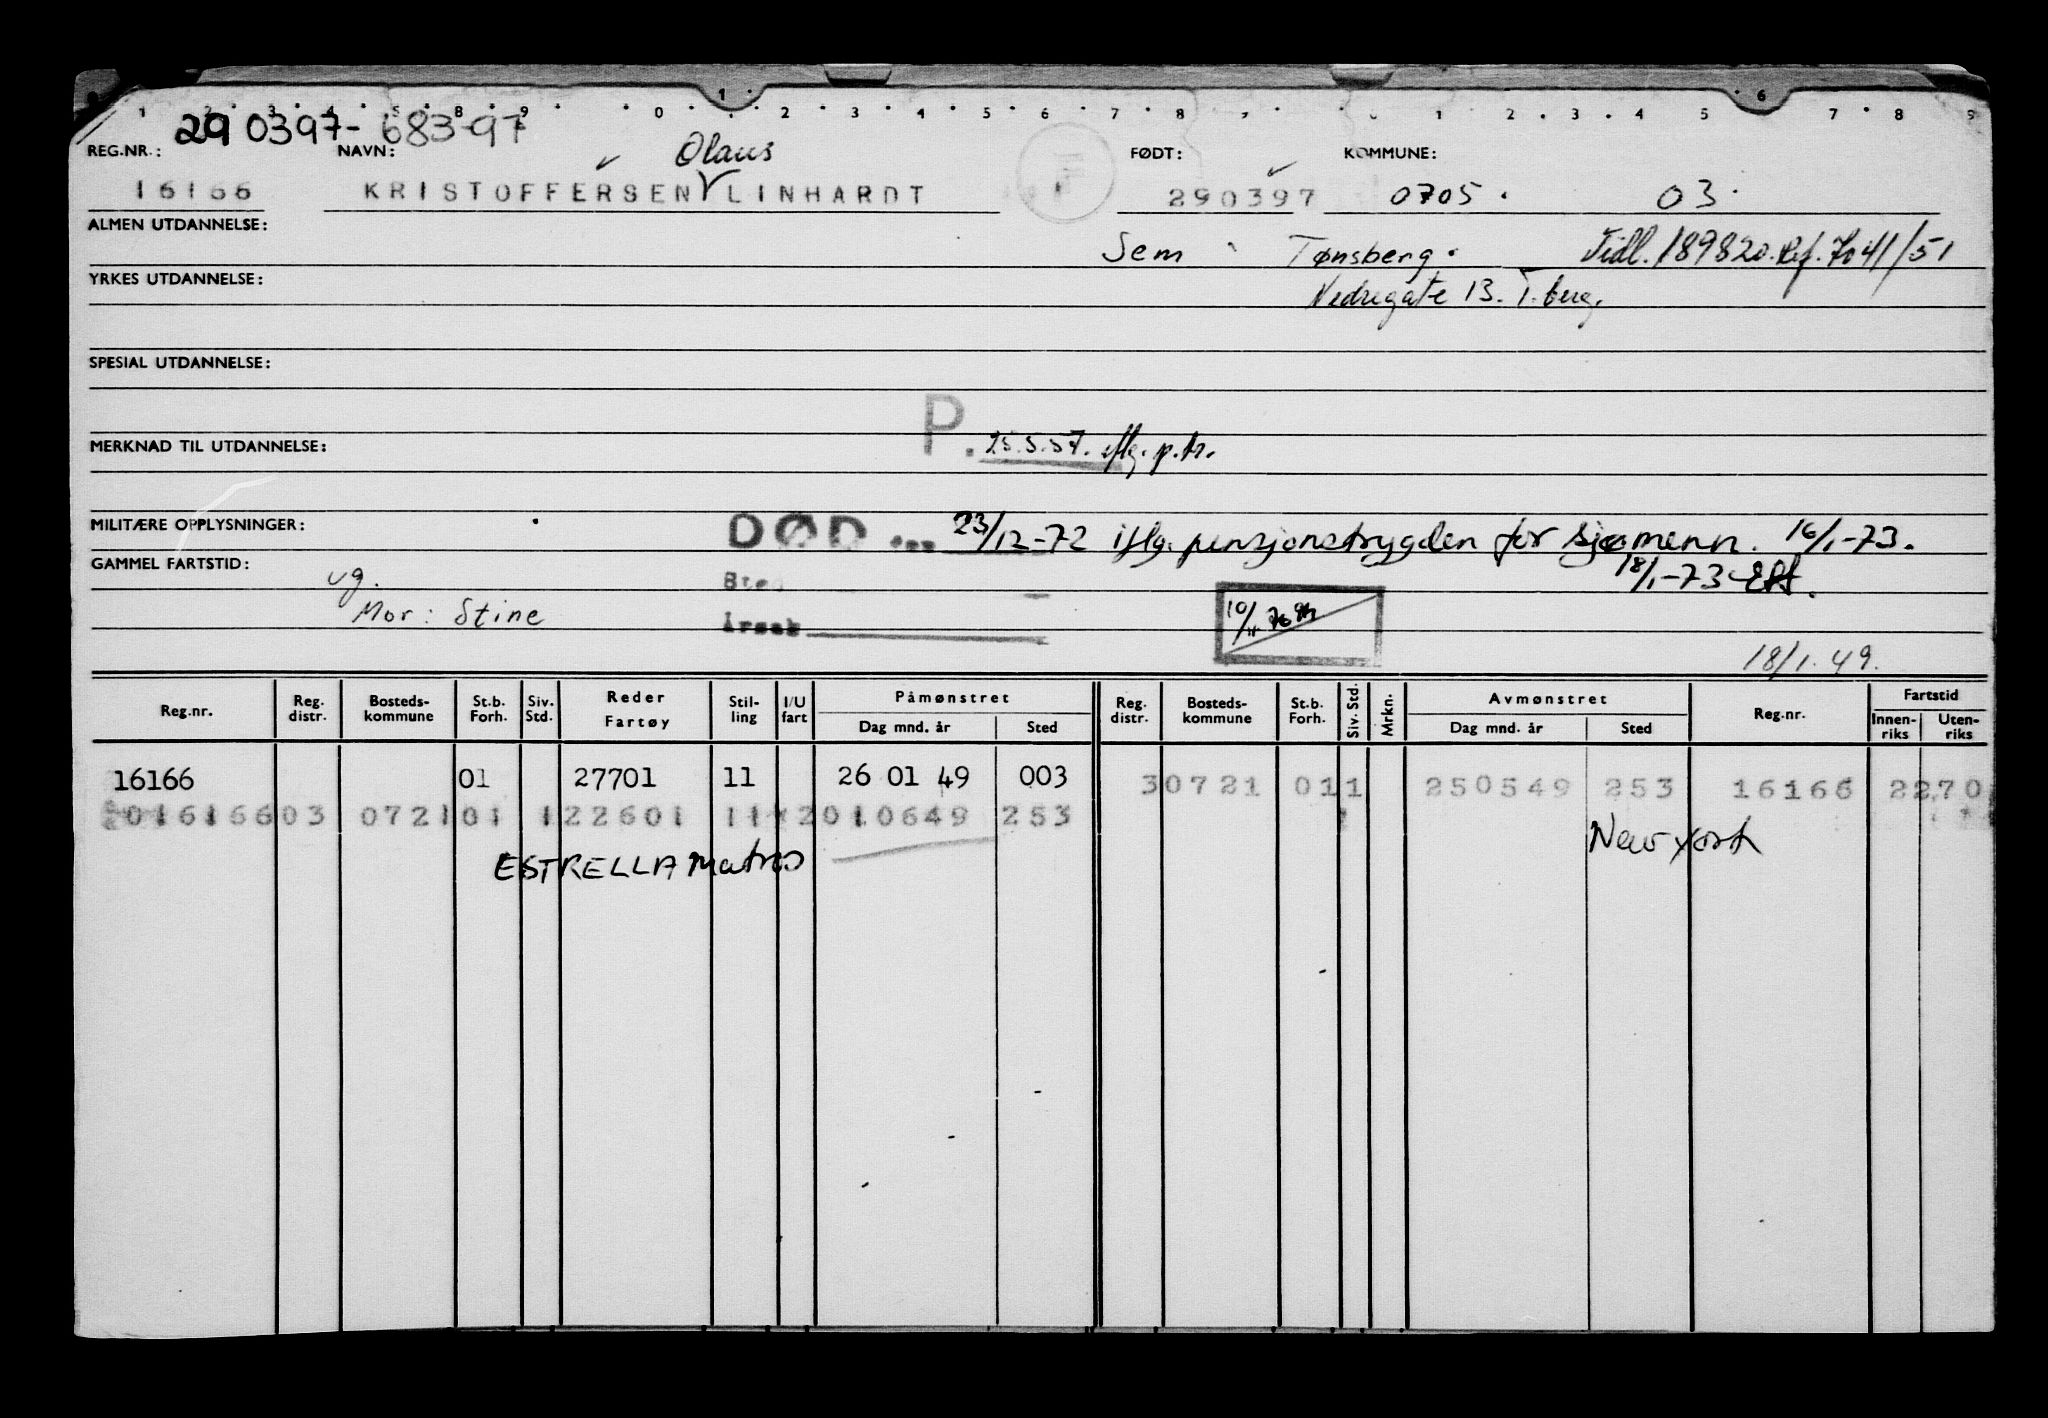 1 2 3 4 5 8 9 0 1 2 3 4 5 6 7 8 9 0 1 2 3 4 5 6 7 8 9
290397- 683-97
REG.NR.: NAVN: Olaus FØDT: KOMMUNE:
16166 KRISTOFFERSEN LINHARDT 290397 0705. 03.
ALMEN UTDANNELSE: Sem Tønsberg. Tidl. 189820. Ref. 7041/51
YRKES UTDANNELSE: Nedregate 13. T.berg.
SPESIAL UTDANNELSE:
MERKNAD TIL UTDANNELSE: P. 25.5.57. iflg. p.tr.
MILITÆRE OPPLYSNINGER: DØD 23/12-72 iflg. pensjonstrygden for sjømenn. 16/1-73.
GAMMEL FARTSTID: ug. Sted 18/1-73 Eft.
Mor: Stine Årsak 10/11
18/1.49.
Reg.nr. Reg. distr. Bosteds- kommune St.b. Forh. Siv. Std. Reder Fartøy Stil- ling I/U fart Påmønstret Dag mnd. år Sted Reg. distr. Bosteds- kommune St.b. Forh. Siv. Std. Mrkn. Avmønstret Dag mnd. år Sted Reg.nr. Fartstid Innen- riks Uten- riks
16166 01 27701 11 26 01 49 003 30721 011 250549 253 16166 2270
01616603 072101 122601 11 2010649 253
ESTRELLA Matros New York